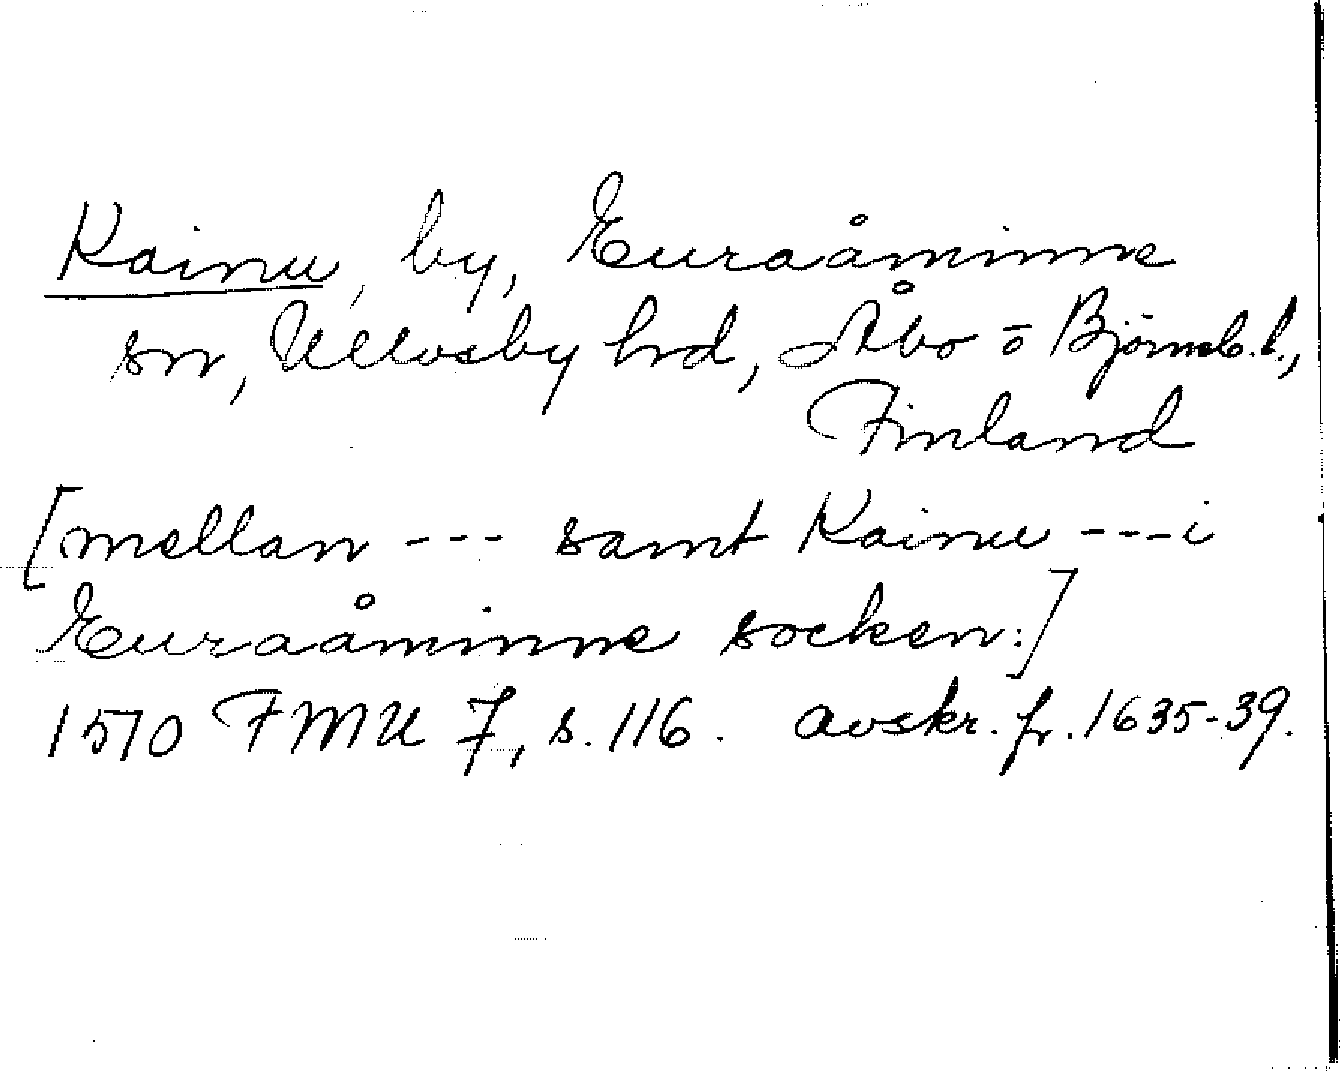 Kainu, by, Euraåminne
sn, Ulvsby hd, Åbo o Björneb. l.,
Finland
[mellan --- samt Kainu --- i
Euraåminne socken:]
1570 FMU 7, s. 116. avskr. fr. 1635-39.